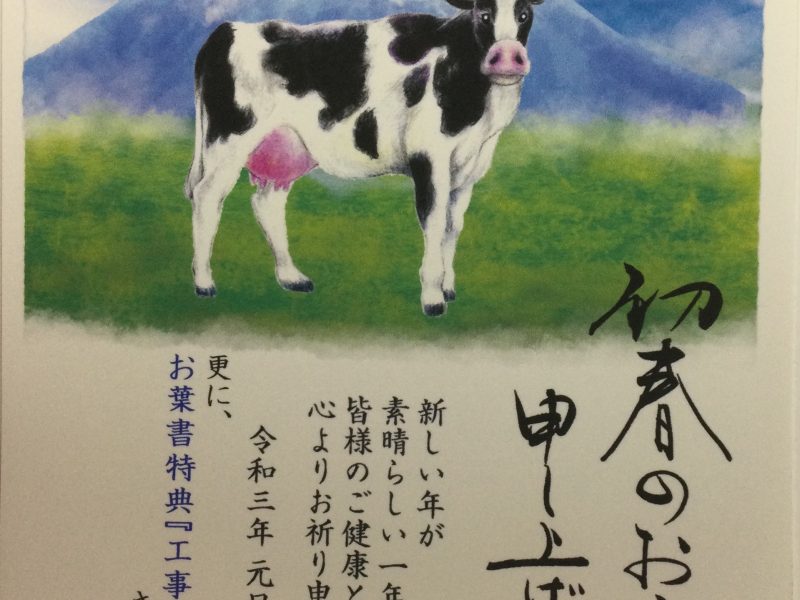 初春のお
申し上げ
新しい年が
素晴らしい一年
皆様のご健康と
心よりお祈り申
令和三年 元日
更に、
お葉書特典『工事